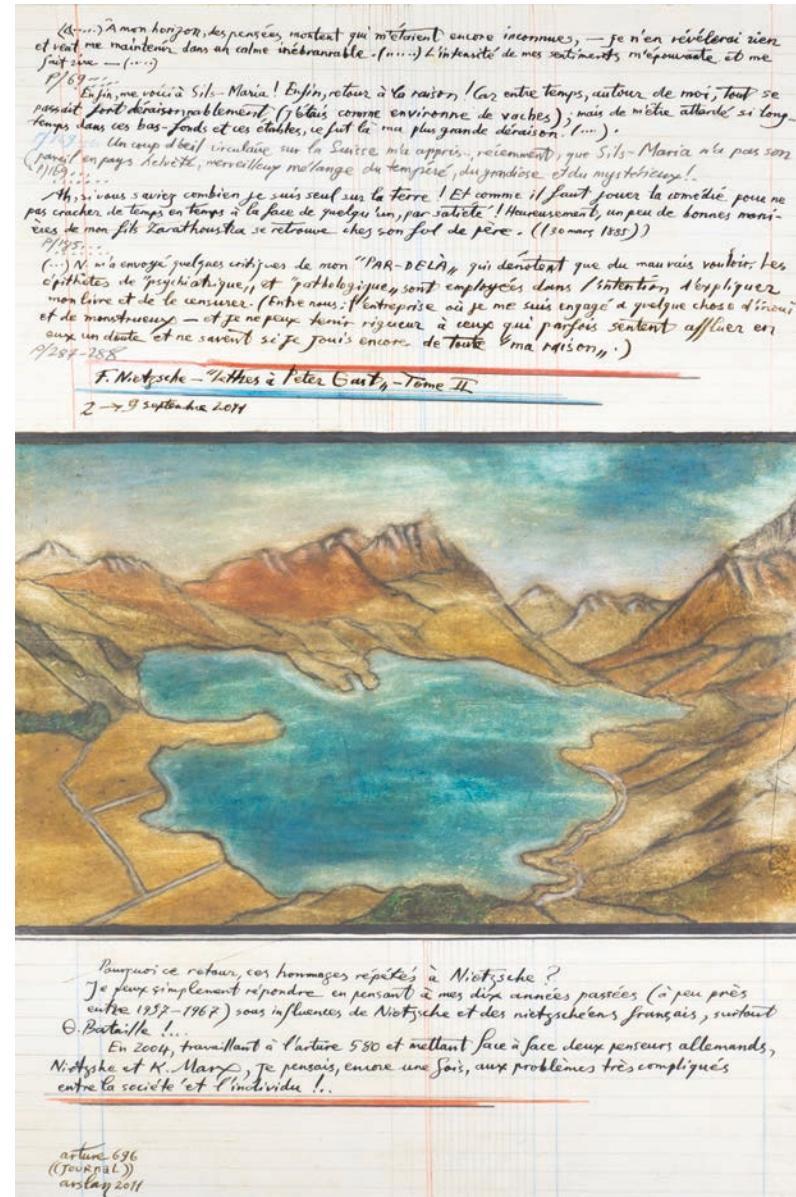 (.....) À mon horizon, des pensées montent qui m'étaient encore inconnues, — je n'en révélerai rien
et veut me maintenir dans un calme inébranrable. (.....) L'intensité de mes sentiments m'épouvante et me
fait rire — (....)
P/69
Enfin, me voici à Sils-Maria! Enfin, retour à la raison! Car entre temps, autour de moi, tout se
passait fort déraisonnablement (j'étais comme environné de vaches); mais de m'être attardé si long-
temps dans ces bas-fonds et ces étables, ce fut là ma plus grande déraison. (....).
Un coup d'œil circulaire sur la Suisse m'a appris, récemment, que Sils-Maria n'a pas son
pareil en pays helvète, merveilleux mélange du tempéré, du grandiose et du mystérieux!..
P/169
Ah, si vous saviez combien je suis seul sur la terre! Et comme il faut jouer la comédie pour ne
pas cracher de temps en temps à la face de quelqu'un, par satiété! Heureusement, un peu de bonnes mani-
ères de mon fils Zarathoustra se retrouve chez son fol de père. ((30 mars 1885))
P/195
(...) N. m'a envoyé quelques critiques de mon "PAR-DELÀ" qui dénotent que du mauvais vouloir. Les
épithètes de "psychiatrique" et "pathologique" sont employées dans l'intention d'expliquer
mon livre et de le censurer. (Entre nous: l'entreprise où je me suis engagé a quelque chose d'inouï
et de monstrueux — et je ne peux tenir rigueur à ceux qui parfois sentent affluer en
eux un doute et ne savent si je jouis encore de toute "ma raison".)
P/287-288
F. Nietzsche — "Lettres à Peter Gast" — Tome II
2 → 9 septembre 2011
Pourquoi ce retour, ces hommages répétés à Nietzsche?
Je peux simplement répondre en pensant à mes dix années passées (à peu près
entre 1957-1967) sous influences de Nietzsche et des nietzschéens français, surtout
G. Bataille!...
En 2004, travaillant à l'arture 580 et mettant face à face deux penseurs allemands,
Nietzshe et K. Marx, je pensais, encore une fois, aux problèmes très compliqués
entre la société et l'individu!..
arture 696
((JOURNAL))
arslan 2011